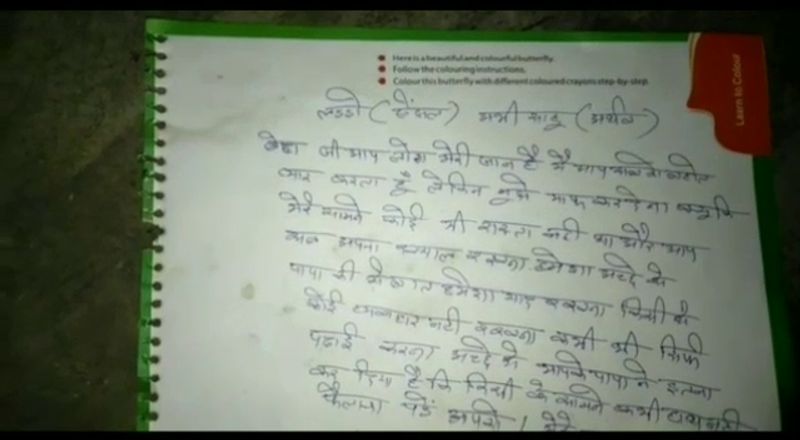 Here is a beautiful and colourful butterfly.
Follow the colouring instructions.
Colour this butterfly with different coloured crayons step-by-step.
Learn to Colour
लडडो ( ) सभी साबु (अर्थव)
बेटा जी आप लोग मेरी जान है मैं आप
प्यार करता हूँ लेकिन मुझे माफ करदेना क्युकि
मेरे सामने कोई भी रास्ता नही था और आप
सब अपना ख्याल रखना हमेशा अच्छे से
पापा की ये बात हमेशा याद रखना किसी से
कोई व्यवहार नही रखना कभी भी सिर्फ
पढाई करना अच्छे से आपके पापा ने इतना
कर दिया है कि किसी के सामने कभी हाथ नही
फैलाना पडे आपको । मेरे